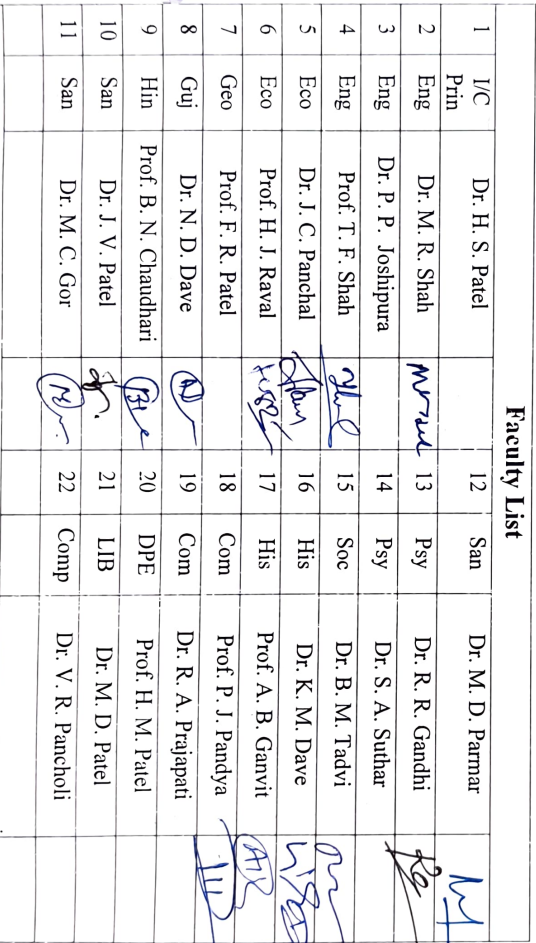 Faculty List
1 I/C Prin Dr. H. S. Patel 12 San Dr. M. D. Parmar
2 Eng Dr. M. R. Shah 13 Psy Dr. R. R. Gandhi
3 Eng Dr. P. P. Joshipura 14 Psy Dr. S. A. Suthar
4 Eng Prof. T. F. Shah 15 Soc Dr. B. M. Tadvi
5 Eco Dr. J. C. Panchal 16 His Dr. K. M. Dave
6 Eco Prof. H. J. Raval 17 His Prof. A. B. Ganvit
7 Geo Prof. F. R. Patel 18 Com Prof. P. J. Pandya
8 Guj Dr. N. D. Dave 19 Com Dr. R. A. Prajapati
9 Hin Prof. B. N. Chaudhari 20 DPE Prof. H. M. Patel
10 San Dr. J. V. Patel 21 LIB Dr. M. D. Patel
11 San Dr. M. C. Gor 22 Comp Dr. V. R. Pancholi